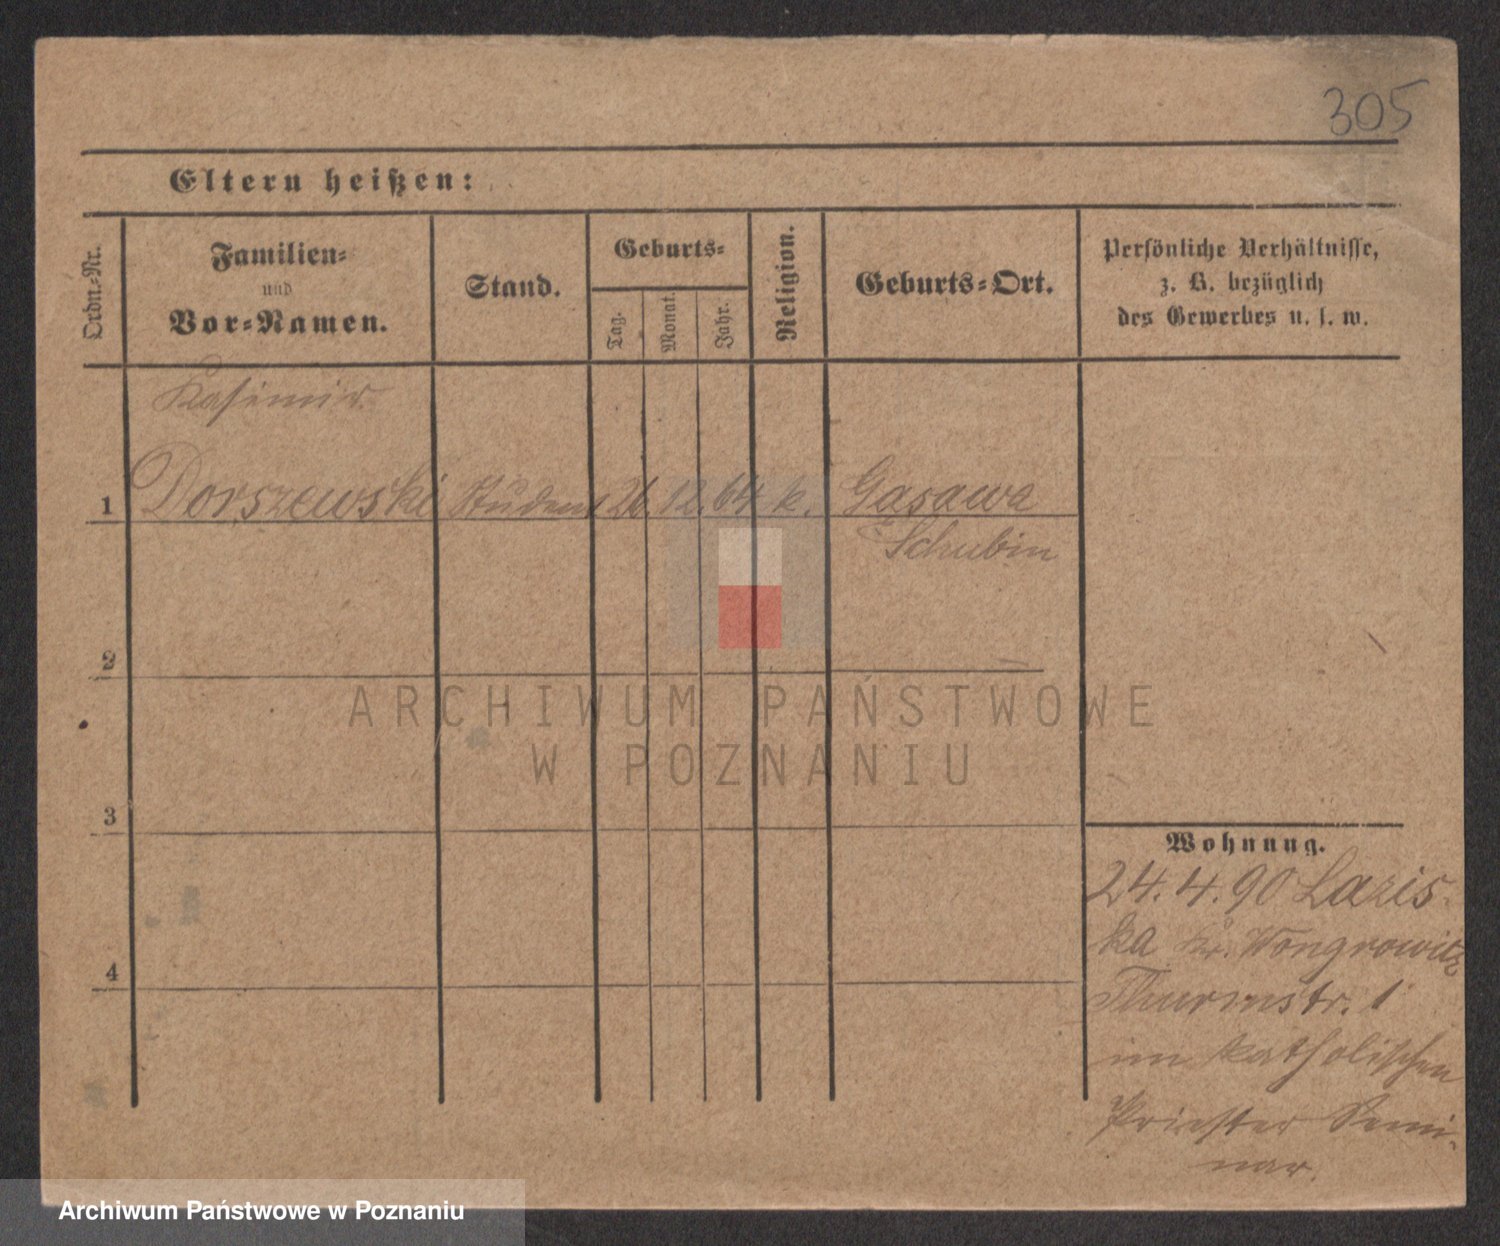 305
Eltern heißen:
Ordn.-Nr.
Familien-
und
Vor-Namen.
Stand.
Geburts-
Tag.
Monat.
Jahr.
Religion.
Geburts-Ort.
Persönliche Verhältnisse,
z. B. bezüglich
des Gewerbes u. s. w.
Kasimir
1 Dorszewski Student 26. 12. 64 k. Gasawa
Schubin
2
3
4
Wohnung.
24. 4. 90 Lazis-
ka Kr. Wongrowitz
Thurmstr. 1
im katholischen
Priester Semi-
nar.
ARCHIWUM PAŃSTWOWE
W POZNANIU
Archiwum Państwowe w Poznaniu